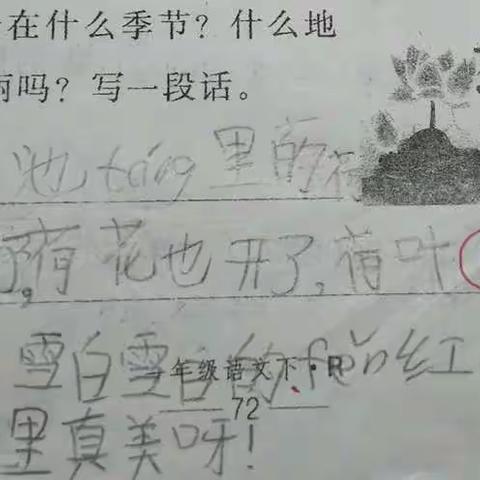 在什么季节？什么地
吗？写一段话。
池táng里的荷
了，荷花也开了，荷叶
雪白雪白的，fěn红
年级语文下·R
72
里真美呀！